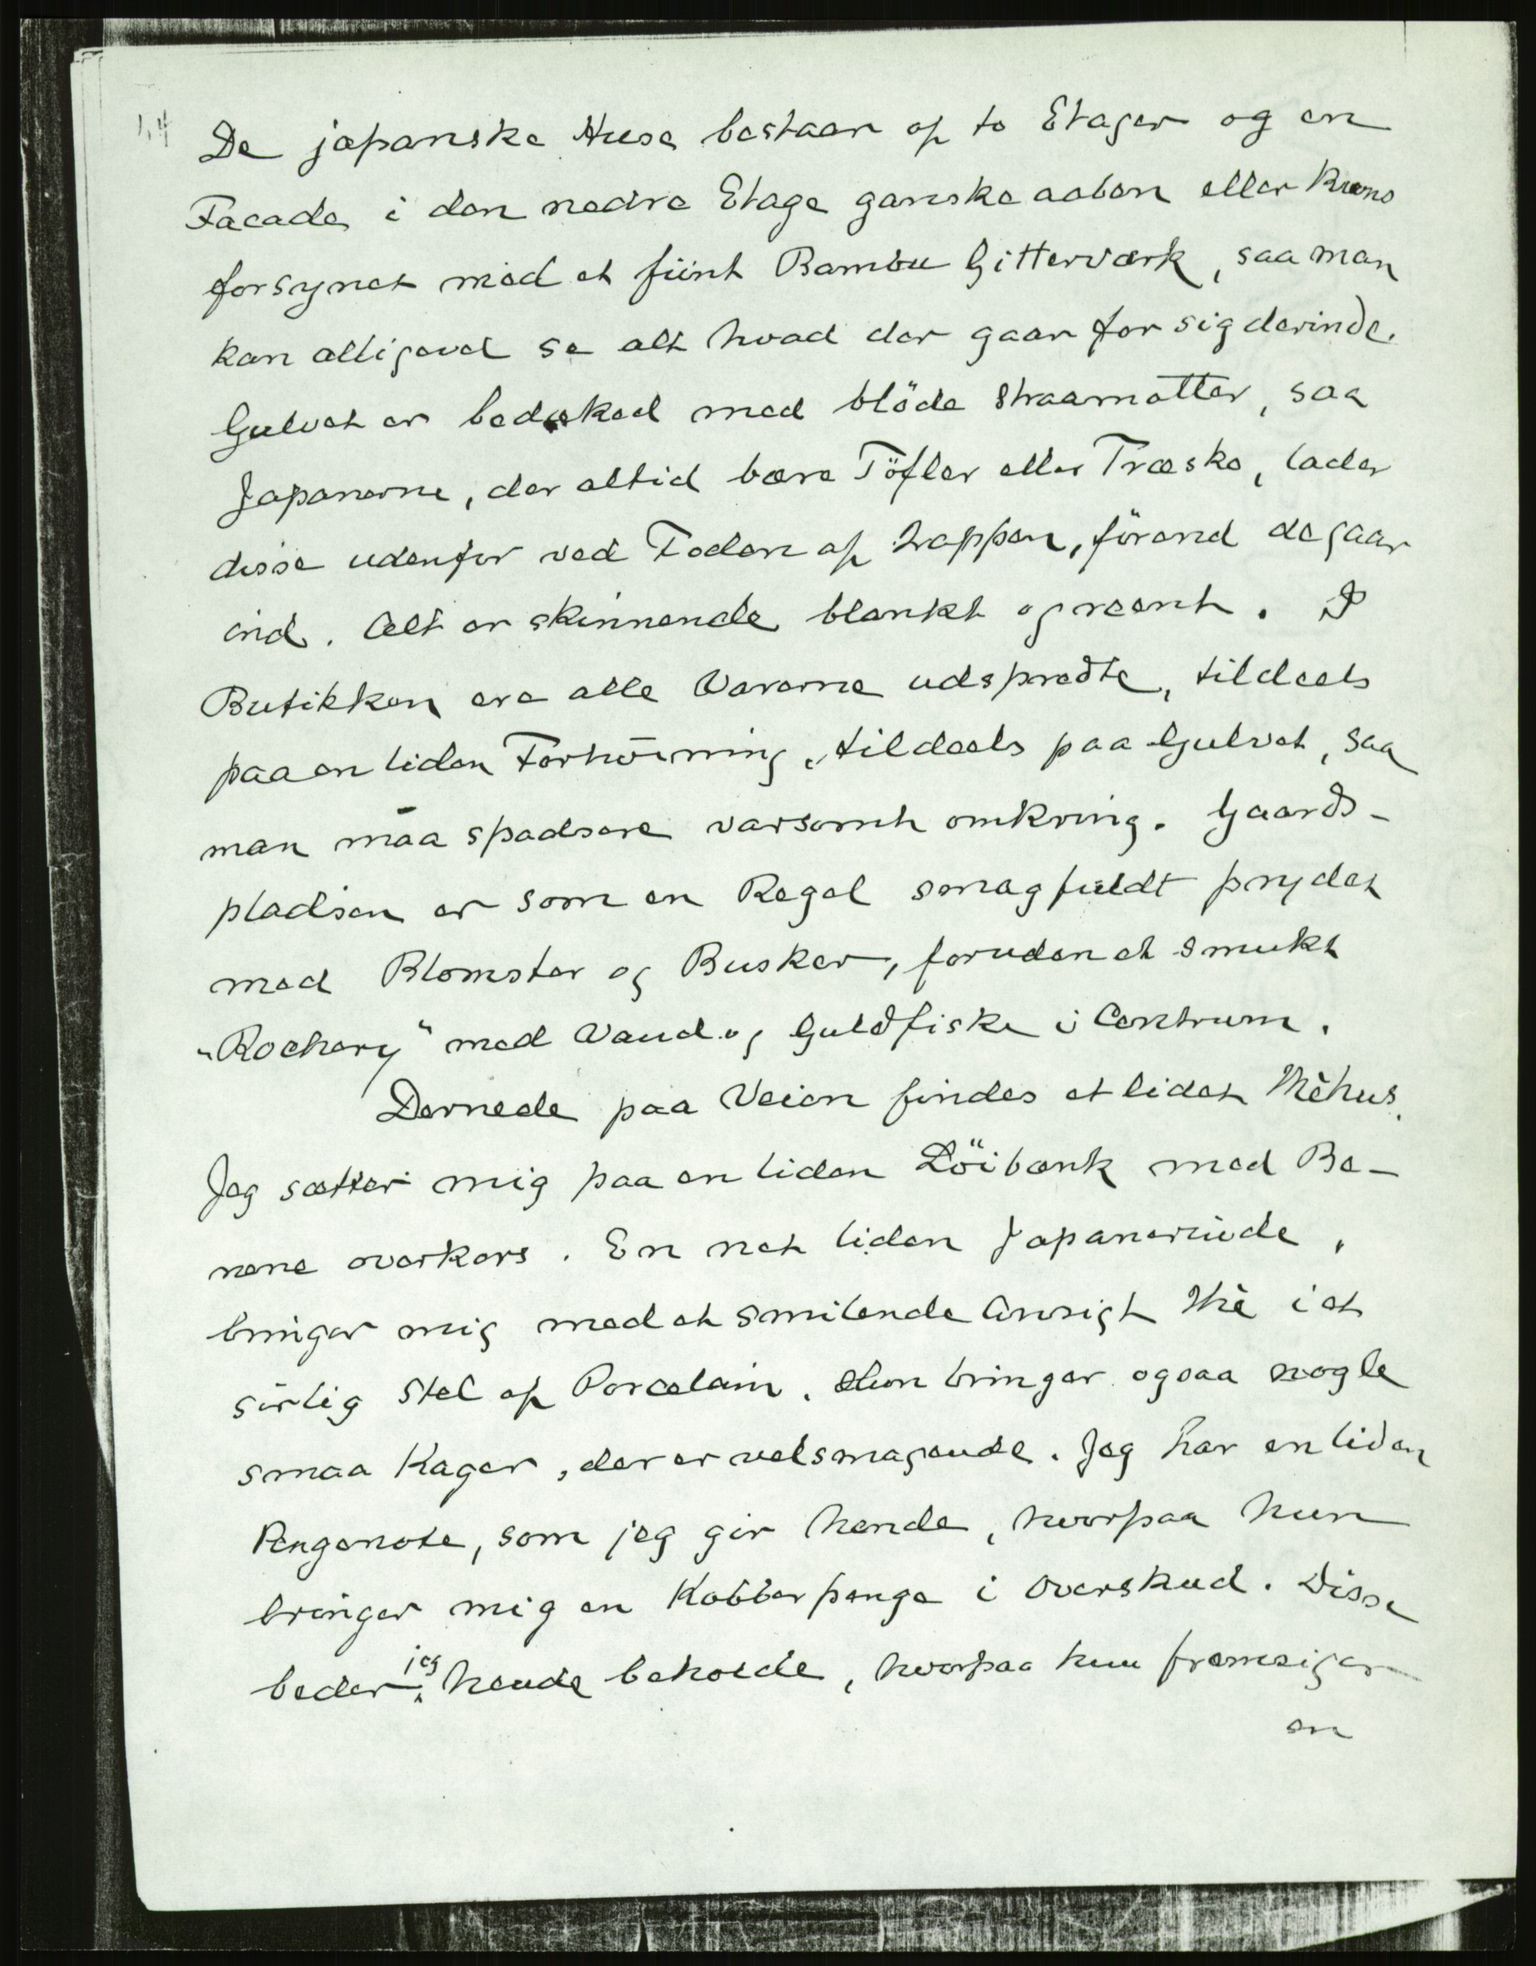 1,4
De japanske Huse bestaar af to Etager og en
Facade i den nedre Etage ganske aaben eller kuns
forsynet med et fiint Bambu Gitterværk, saa man
kan alligevel se alt hvad der gaar for sig derinde.
Gulvet er bedækked med blöde Straamatter, saa
Japanerne, der altid bære Töfler eller Træsko, lader
disse udenfor ved Foden af Trappen, förend de gaar
ind. Alt er skinnende blankt og reent. I
Butikken ere alle Varerne udspredte, tildeels
paa en liden Forhöining, tildeels paa Gulvet, saa
man maa spadsere varsomt omkring. Gaards-
pladsen er som en Regel smagfuldt prydet
med Blomster og Busker, foruden et smukt
"Rockery" med Vand og Guldfiske i Centrum.
Dernede paa Veien findes et lidet Thèhus.
Jeg sætter mig paa en liden Löibænk med Be-
nene overkors. En net liden Japanerinde,
bringer mig med et smilende Ansigt Thè i et
sirlig Stel af Porcelain. Hun bringer ogsaa nogle
smaa Kager, der er velsmagende. Jeg har en liden
Pengenote, som jeg gir hende, hvorpaa hun
bringer mig en Kobberpenge i Overskud. Disse
beder jeg hende beholde, hvorpaa hun fremsiger
en